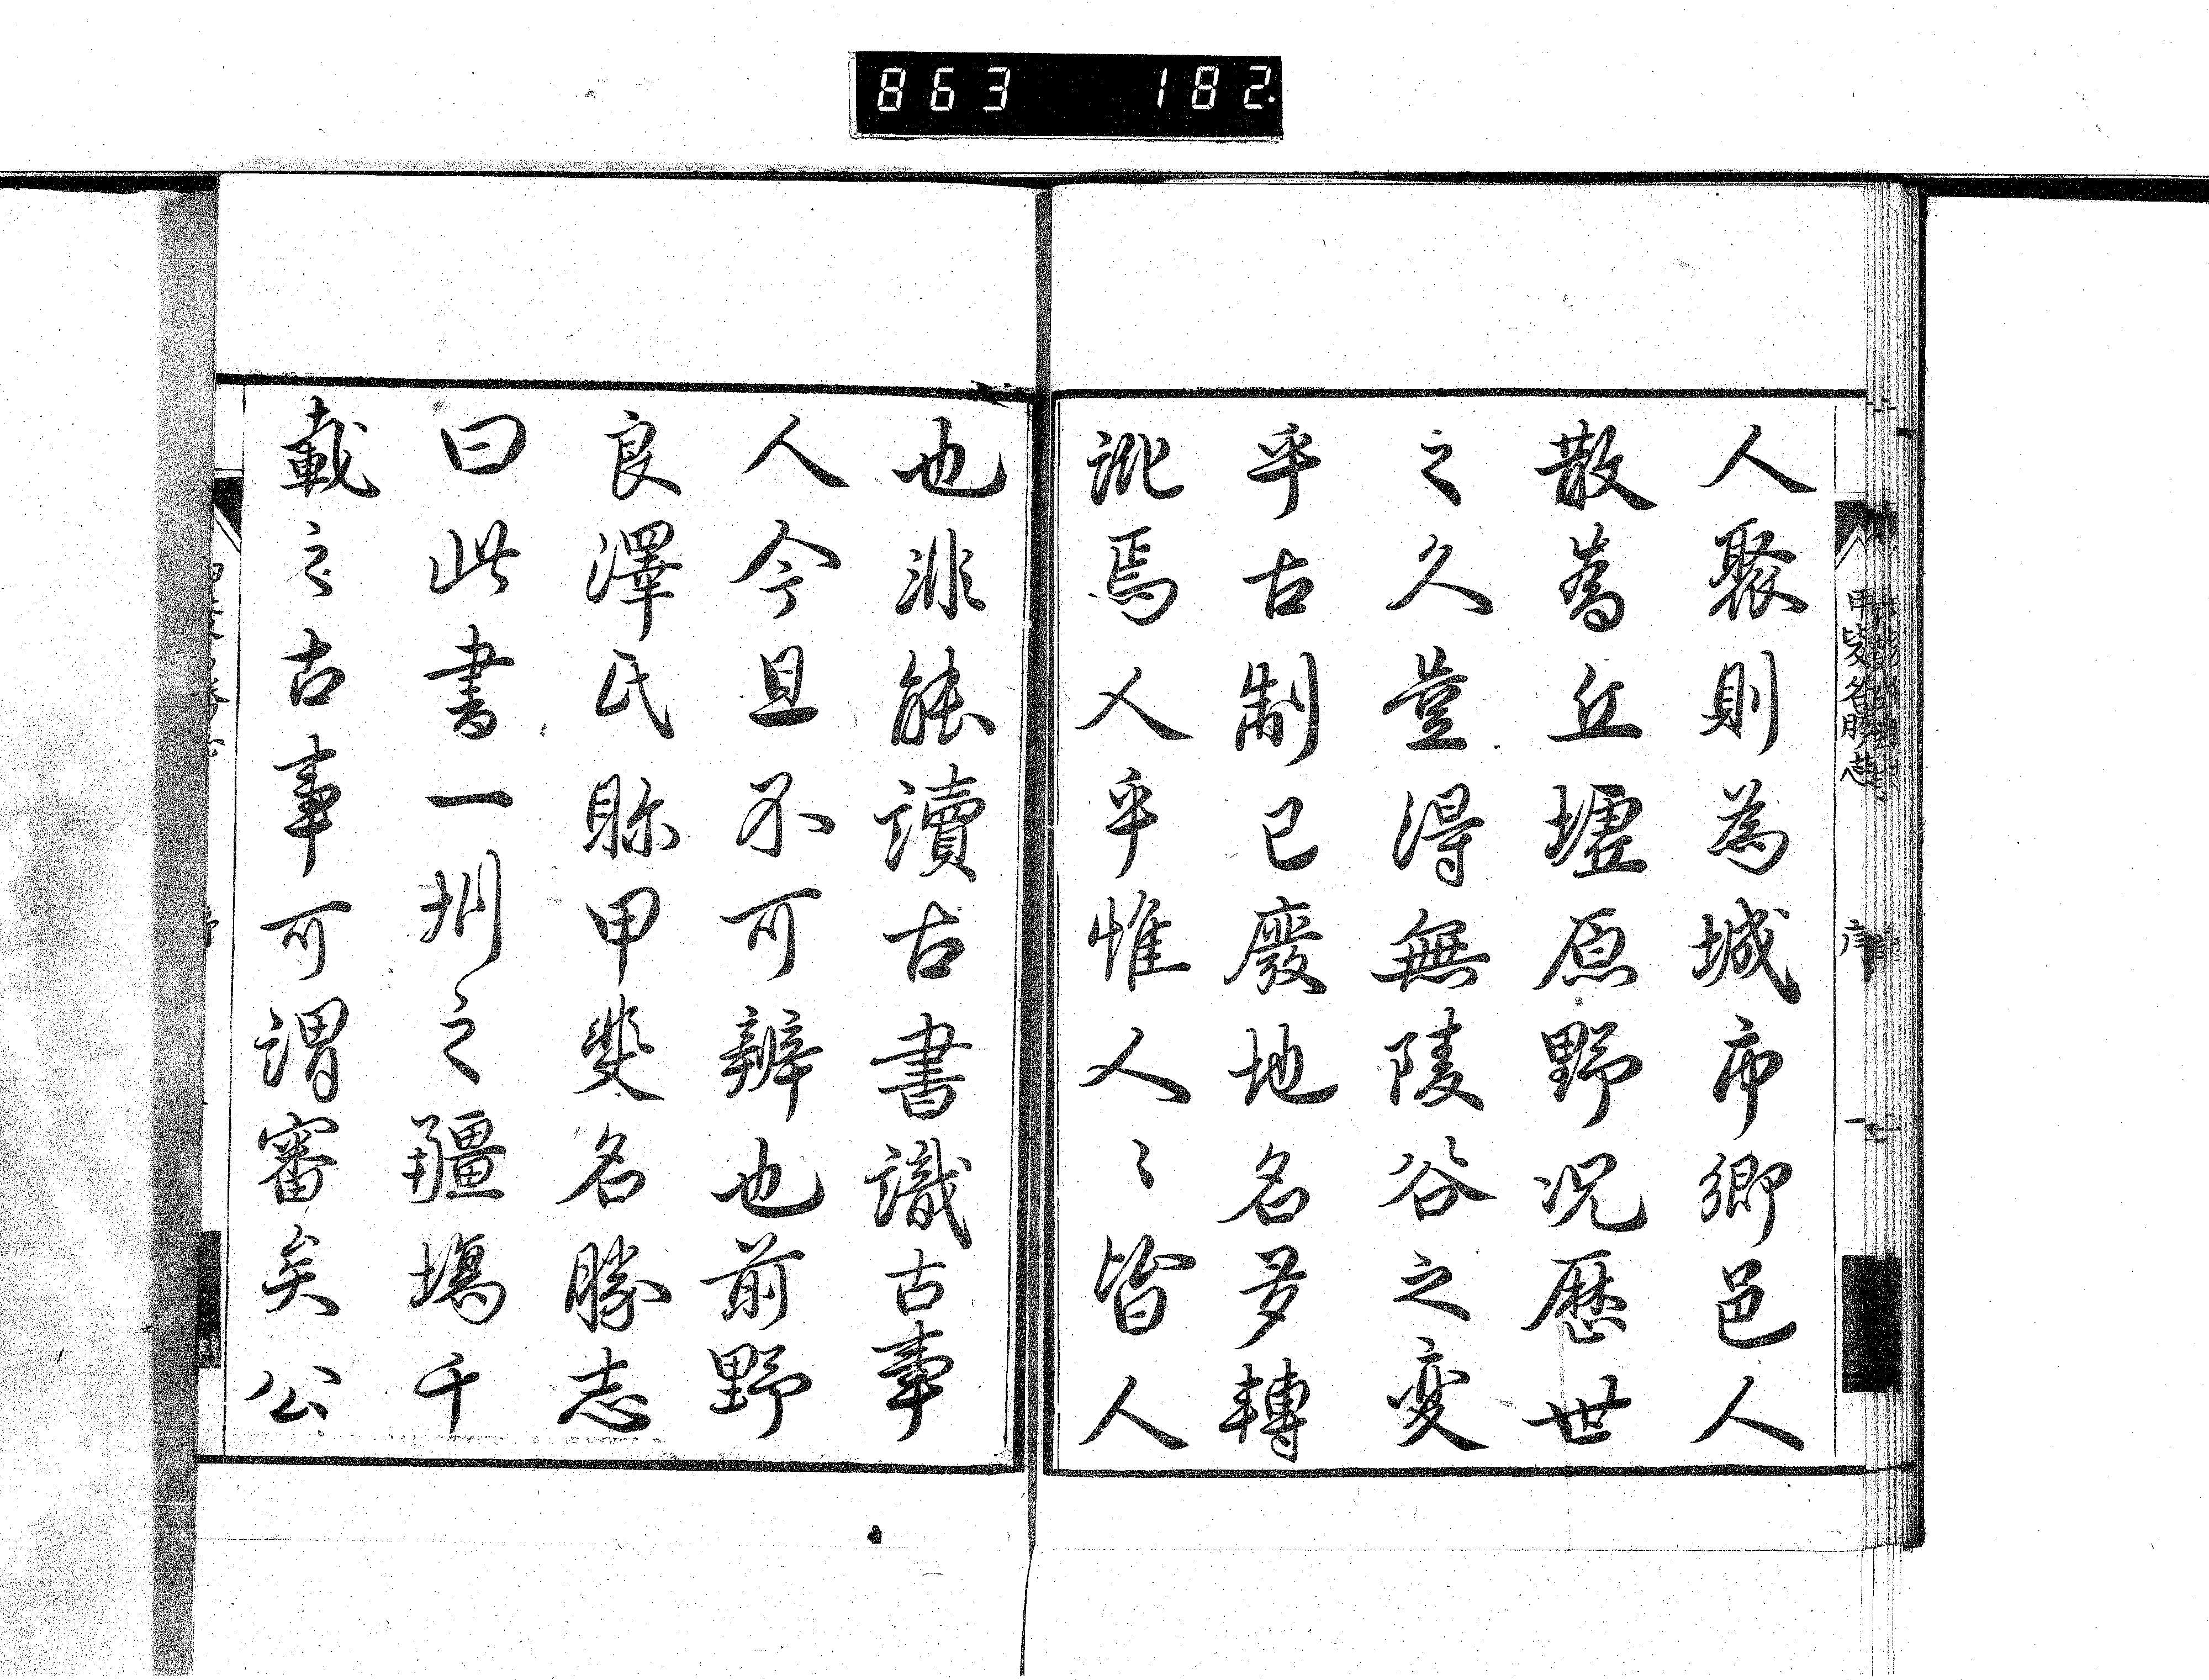 863 182.
人聚則為城市鄉邑人
散為丘墟原野況歷世
之久豈得無陵谷之變
乎古制已廢地名多轉
訛焉人乎惟人〻皆人
也非能讀古書識古事
人今且不可辨也前野
良澤氏眎甲斐名勝志
曰此書一州之疆場千
載之古事可謂審矣公
甲斐名勝志
序
一